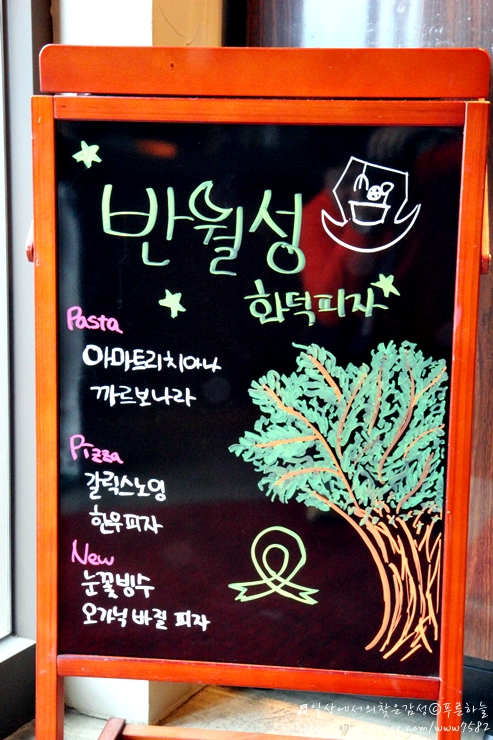 반월성
화덕피자
Pasta
아마트리치아나
까르보나라
Pizza
갈릭스노잉
한우피자
New
눈꽃빙수
오가닉 바질 피자
일상에서의 찾은 감성©푸른하늘
.com/www7582